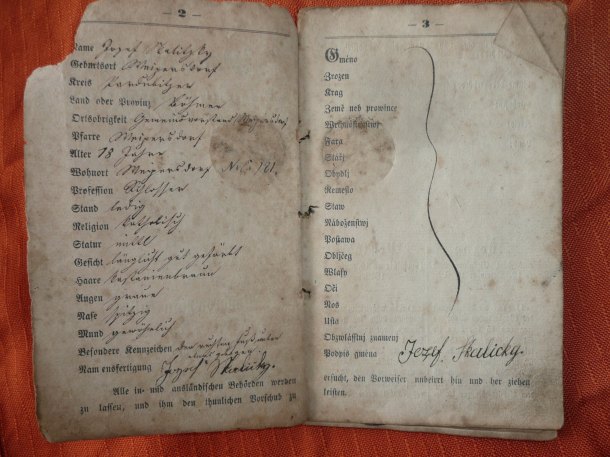 — 2 —
Name Jozef Skalitzky
Geburtsort Weipersdorf
Kreis Pardubitzer
Land oder Provinz Böhmen
Ortsobrigkeit Gemeindevorstand Weipersdorf
Pfarre Weipersdorf
Alter 18 Jahre
Wohnort Weipersdorf No 121.
Profession Schlosser
Stand ledig
Religion katholisch
Statur mittl
Gesicht länglicht gut gefärbt
Haare kastanienbraun
Augen graue
Nase spitzig
Mund gewöhnlich
Besondere Kennzeichen den rechten Fuß
Namensfertigung Jozef Skalitzky.
Alle in- und ausländischen Behörden werden
zu lassen, und ihm den thunlichen Vorschub zu
— 3 —
Gméno
Zrozen
Krag
Země neb prowince
Fara
Stářj
Obydlj
Remeslo
Staw
Náboženstwj
Postawa
Obličeg
Wlasy
Oči
Nos
Usta
Obzwlásstnj znamenj
Podpis gména Jozif Skalicky.
ersucht, den Vorweiser unbeirrt hin und her ziehen
leisten.